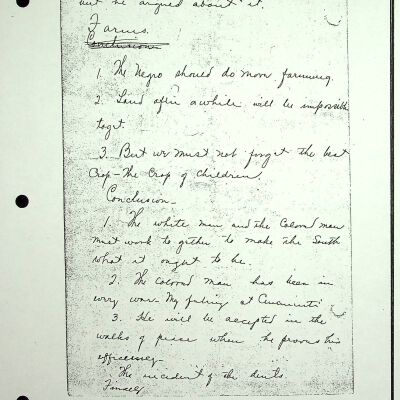 but he argued about it.
Farms.
Conclusion
1. The Negro should do more farming.
2. Land after awhile will be impossible
to get.
3. But we must not forget the best
Crop - The Crop of Children.
Conclusion -
1. The white man and the Colored man
must work to gether to make the South
what it ought to be.
2. The colored man has been in
every war. My feeling at
3. He will be accepted in the
walks of peace when he proves his
efficiency -
The incident of the